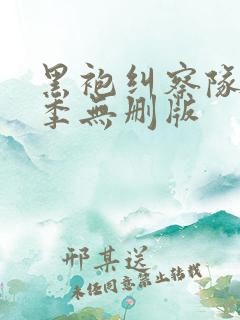 黑袍纠察队
季無删版
邢某送
未经同意禁止转载